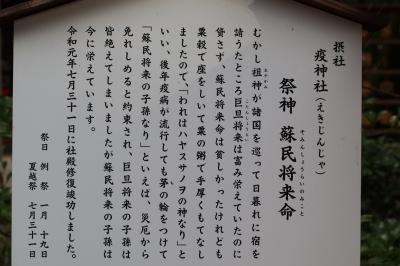 摂社
疫神社(えきじんじゃ)
祭神 蘇民将来命
そみんしょうらいのみこと
むかし祖神が諸国を巡って日暮れに宿を
請うたところ巨旦将来は富み栄えていたのに
貸さず、蘇民将来命は貧しかったけれども
粟殻で座をしいて粟の粥で手厚くもてなし
ましたので、「われはハヤスサノヲの神なり」と
いい、後年疫病が流行しても茅の輪をつけて
「蘇民将来の子孫なり」といえば、災厄から
免れしめると約束され、巨旦将来の子孫は
皆絶えてしまいましたが蘇民将来の子孫は
今に栄えています。
令和元年七月三十一日に社殿修復竣功しました。
祭日 例祭 一月十九日
夏越祭 七月三十一日